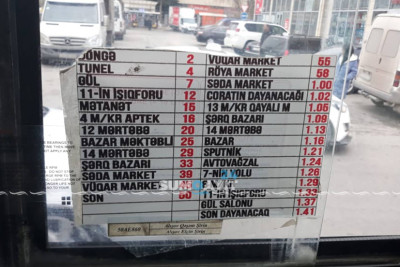 DÖNGƏ 2
TUNEL 4
GÜL 7
11-İN İŞIQFORU 12
MƏTANƏT 15
4 M/KR APTEK 16
12 MƏRTƏBƏ 20
BAZAR MƏKTƏBLİ 25
14 MƏRTƏBƏ 29
ŞƏRQ BAZARI 33
SƏDA MARKET 39
VÜQAR MARKET
SON 50
VÜQAR MARKET 55
RÖYA MARKET 58
SƏDA MARKET 1.00
CORATIN DAYANACAĞI 1.02
13 M/KR QAYALI M 1.05
ŞƏRQ BAZARI 1.09
14 MƏRTƏBƏ 1.13
BAZAR 1.16
SPUTNİK 1.21
AVTOVAĞZAL 1.24
7-Nİ YOLU 1.26
11-İN İŞIQFORU 1.29
1.33
GÜL SALONU 1.37
SON DAYANACAQ 1.41